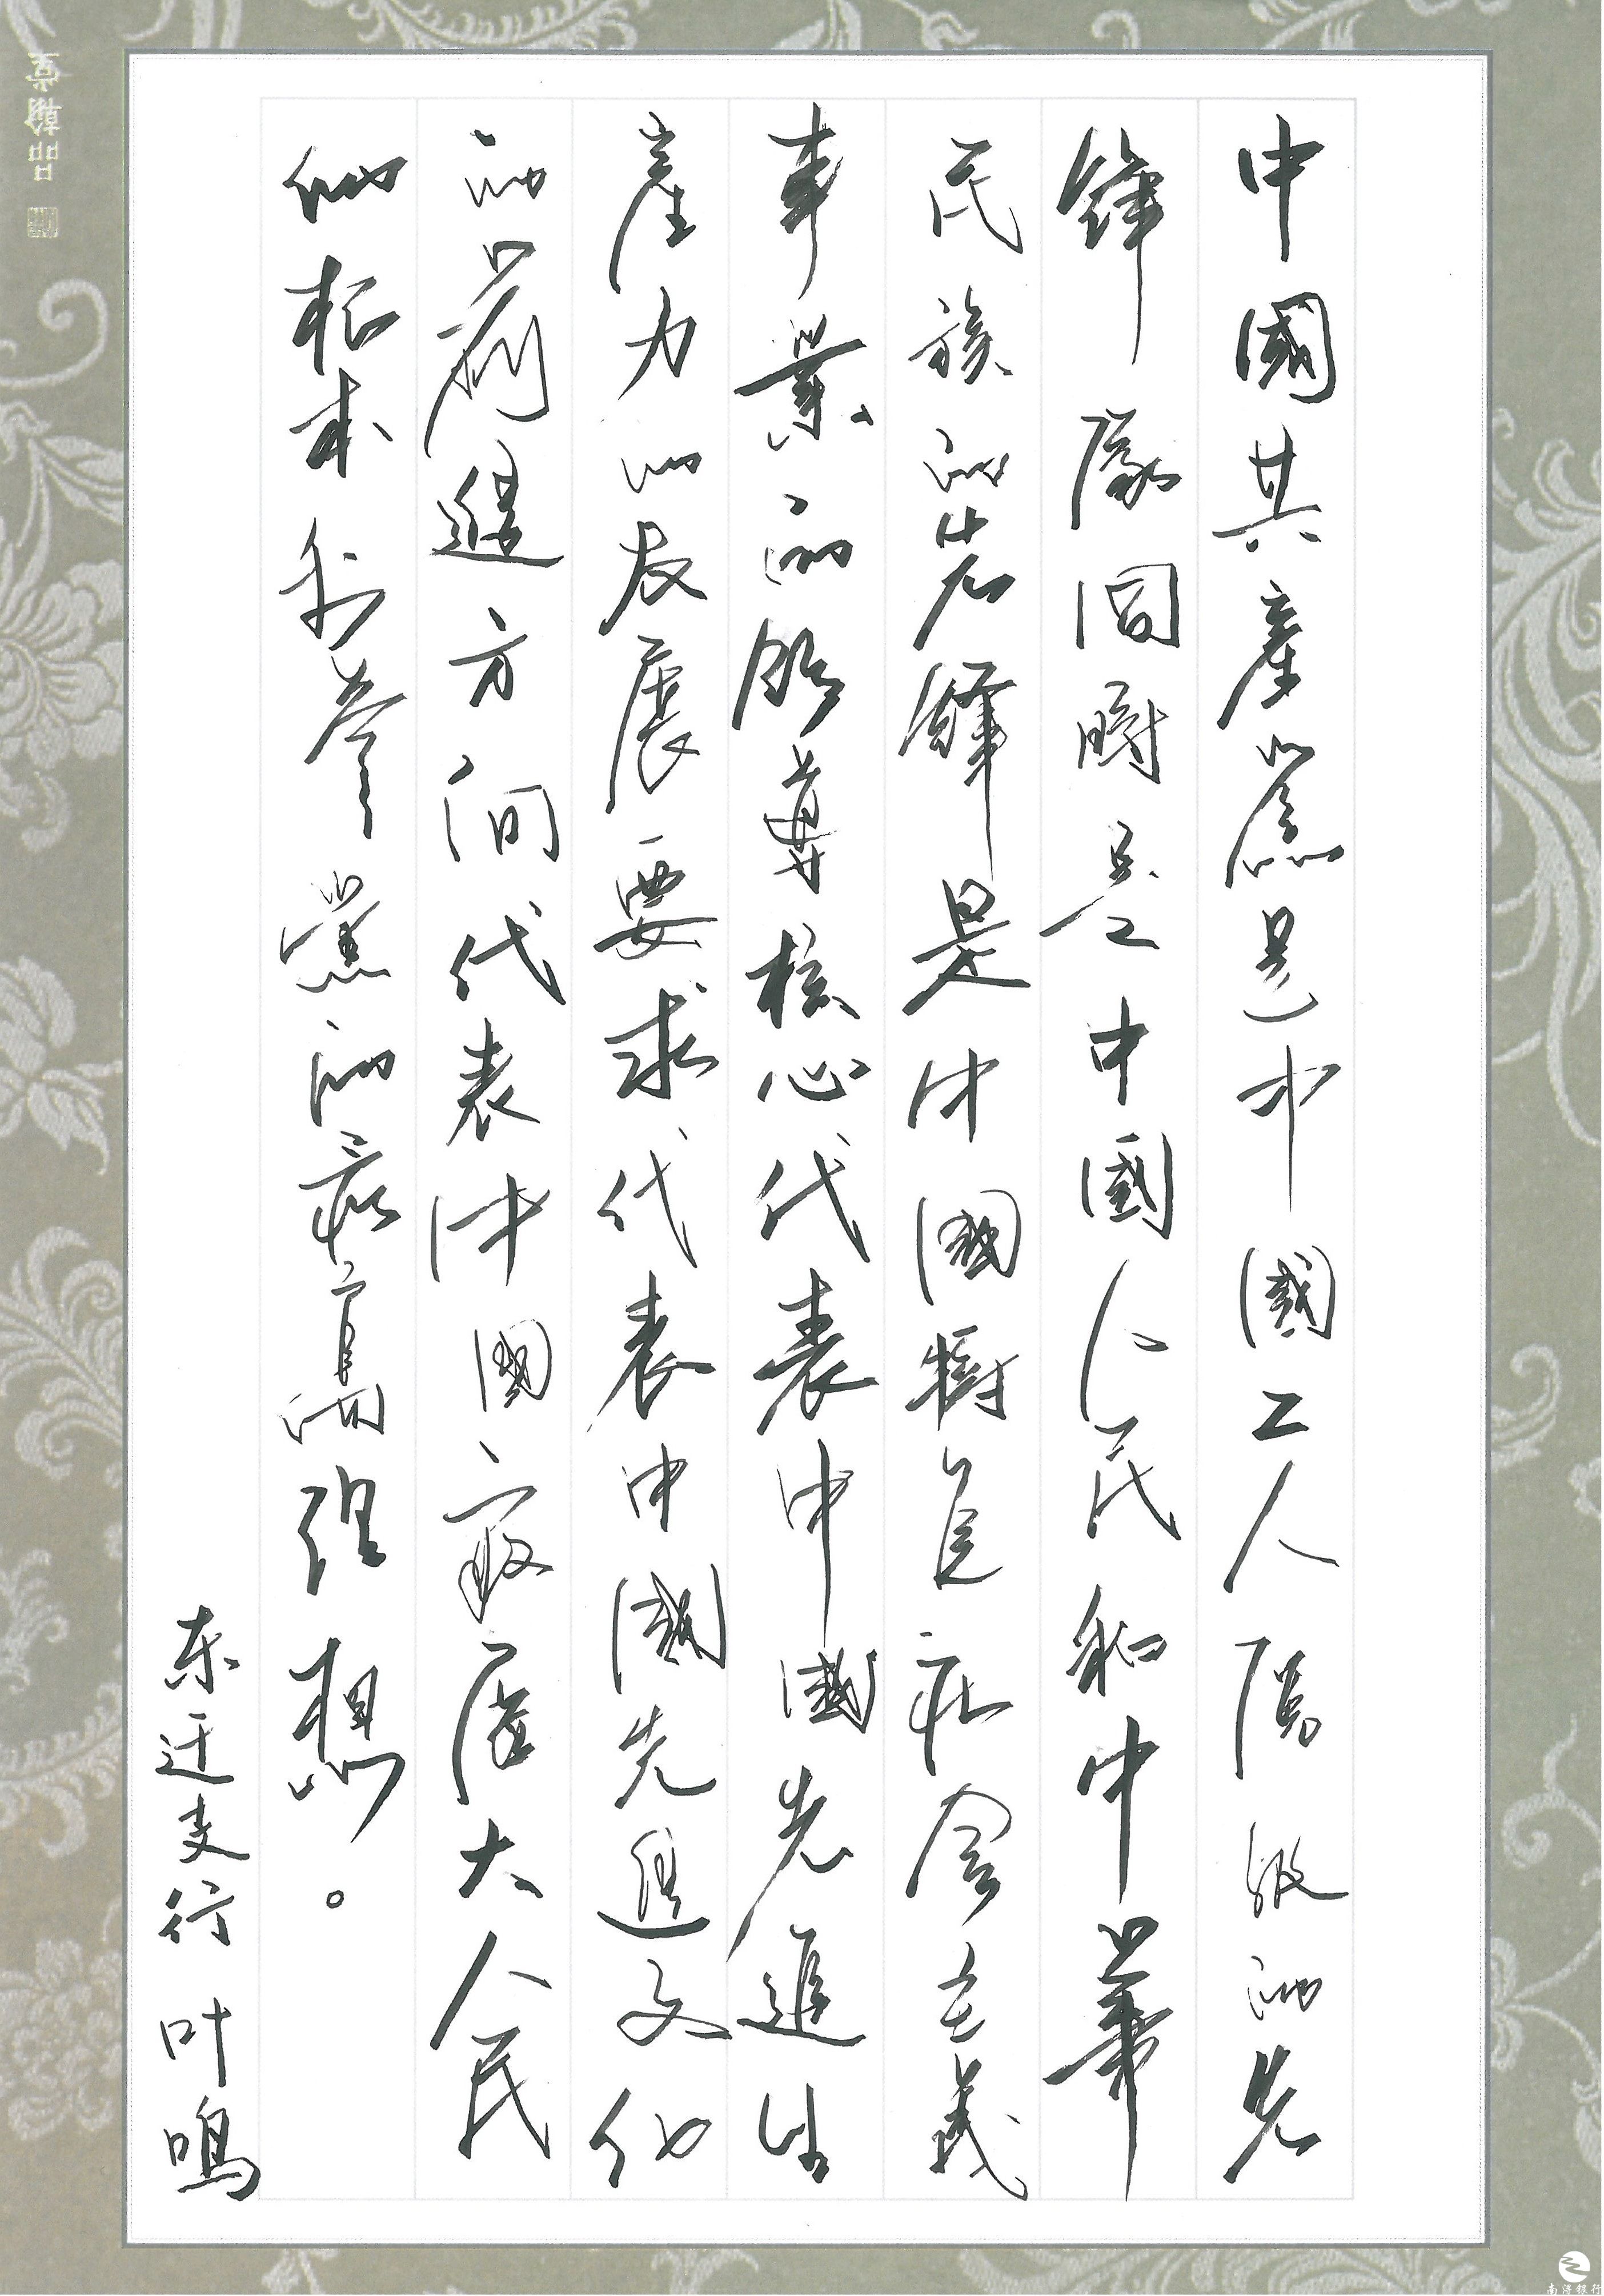 中國共產黨是中國工人階級的先
鋒隊同時是中國人民和中華
民族的先鋒隊是中國特色社會主義
事業的領導核心代表中國先進生
產力的發展要求代表中國先進文化
的前進方向代表中國最廣大人民
的根本利益黨的最高理想。
东迁支行 叶鸣
品翰堂
南浔银行